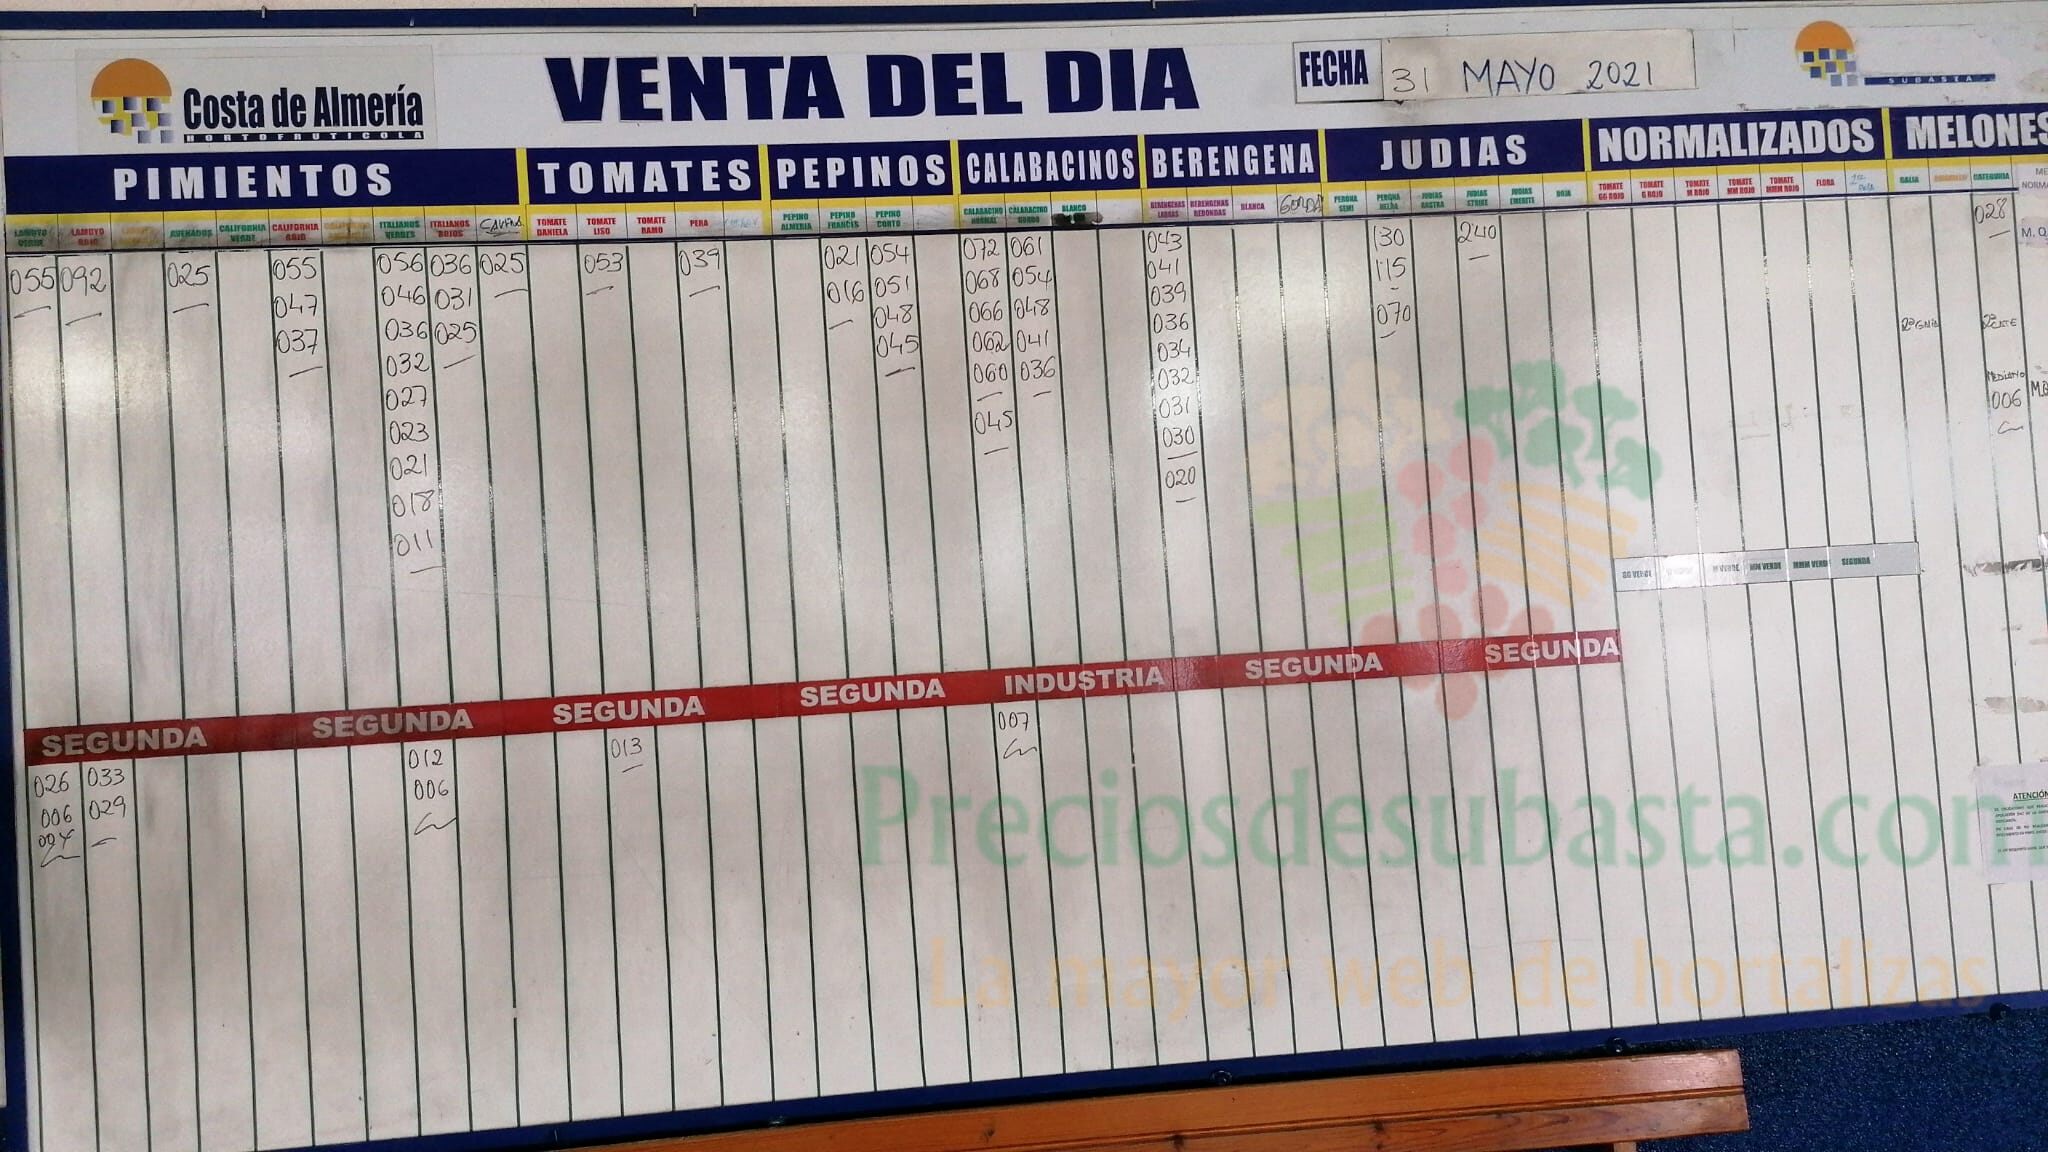 Costa de Almería
HORTOFRUTICOLA
VENTA DEL DIA
FECHA
31 MAYO 2021
SUBASTA
PIMIENTOS
TOMATES
PEPINOS
CALABACINOS
BERENGENA
JUDIAS
NORMALIZADOS
MELONES
LAMUYO VERDE
LAMUYO ROJO
AVENADOS
CALIFORNIA VERDE
CALIFORNIA ROJO
ITALIANOS VERDES
ITALIANOS ROJOS
TOMATE DANIELA
TOMATE LISO
TOMATE RAMO
PERA
PEPINO ALMERIA
PEPINO FRANCÉS
PEPINO CORTO
CALABACINO NORMAL
CALABACINO GORDO
BLANCO
BERENGENAS LARGAS
BERENGENAS REDONDAS
BLANCA
GORDA
PERONA SEMI
PERONA HELDA
JUDIAS RASTRA
JUDIAS STRIKE
JUDIAS EMERITE
ROJA
TOMATE GG ROJO
TOMATE G ROJO
TOMATE M ROJO
TOMATE MM ROJO
TOMATE MMM ROJO
FLORA
GALIA
CATEGORIA
055
092
025
055
047
037
056
046
036
032
027
023
021
018
011
036
031
025
025
053
039
021
016
054
051
048
045
072
068
066
062
060
045
061
054
048
041
036
043
041
039
036
034
032
031
030
020
130
115
070
240
028
2ª GALIA
2ª CATE
MEDIANO
006
GG VERDE
M VERDE
MM VERDE
MMM VERDE
SEGUNDA
SEGUNDA
SEGUNDA
SEGUNDA
SEGUNDA
INDUSTRIA
SEGUNDA
SEGUNDA
026
006
004
033
029
012
006
013
007
ATENCIÓN
Preciosdesubasta.com
La mayor web de hortalizas